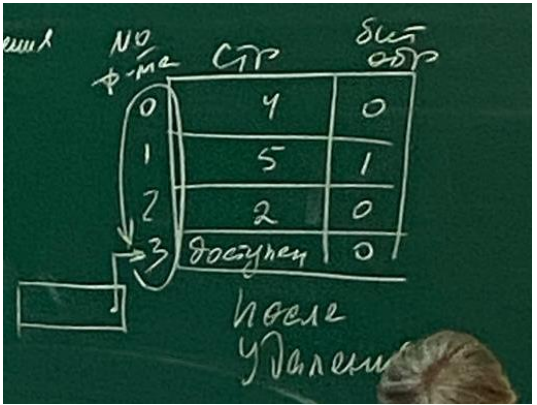 ения
№ ф-ма стр бит обр
0 4 0
1 5 1
2 2 0
3 доступен 0
после
удалени